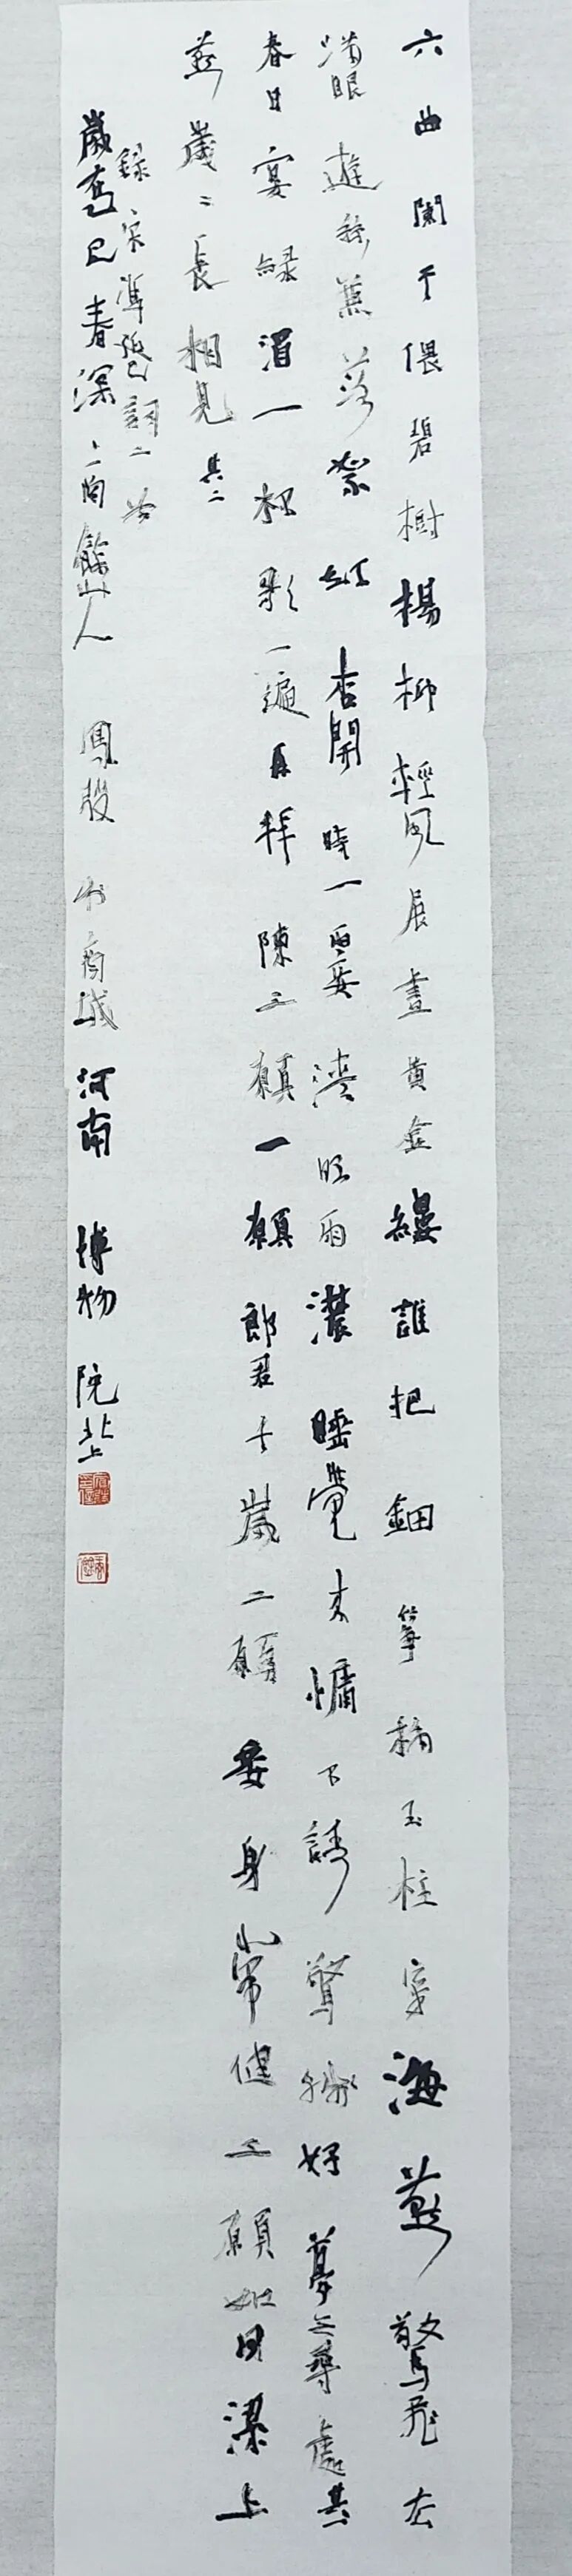 六曲闌干偎碧樹楊柳輕風展盡黃金縷誰把鈿箏移玉柱穿海燕驚飛去
滿眼遊絲兼落絮紅杏開時一霎清明雨濃睡覺來慵不語驚殘好夢無尋處其一
春日宴綠酒一杯歌一遍再拜陳三願一願郎君千歲二願妾身常健三願如同梁上
燕歲二長相見其二
錄宋 詞二首
歲在乙巳春深上 山人 鳳 於商城 河南博物院